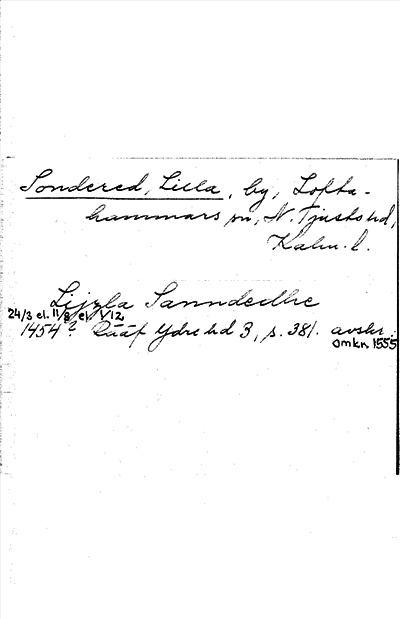 Sondered, Lilla, by, Lofta-
hammars sn, N. Tjusts hd,
Kalm. l.
Lijzla Sanndedhe
24/3 el. 11/8 el. 1/12
1454? Rääf Ydre hd 3, s. 381. avskr.
omkr. 1555